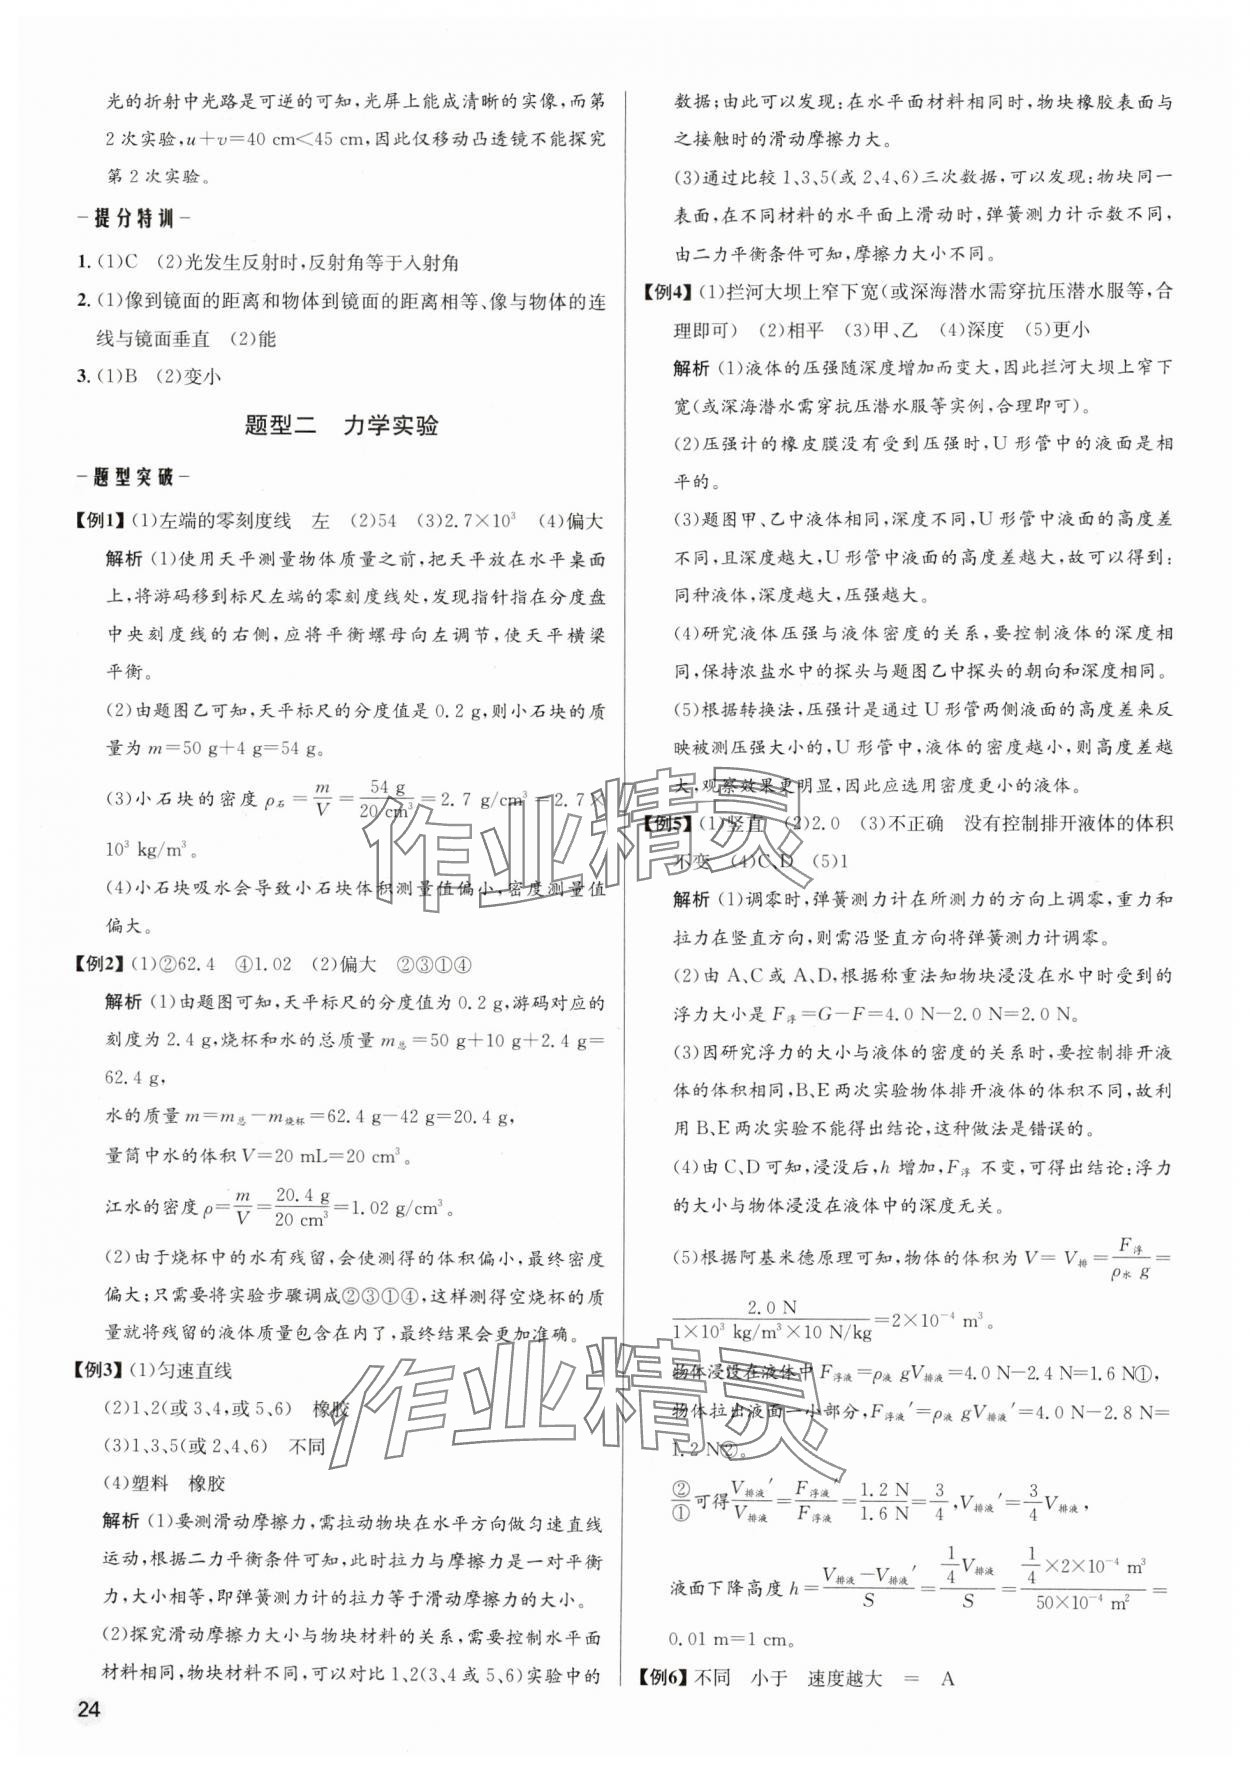 光的折射中光路是可逆的可知,光屏上能成清晰的实像,而第
2次实验,u+v=40 cm<45 cm,因此仅移动凸透镜不能探究
第2次实验。
提分特训
1. (1)C (2)光发生反射时,反射角等于入射角
2. (1)像到镜面的距离和物体到镜面的距离相等、像与物体的连
线与镜面垂直 (2)能
3. (1)B (2)变小
题型二 力学实验
题型突破
【例1】(1)左端的零刻度线 左 (2)54 (3)2.7×10³ (4)偏大
解析 (1)使用天平测量物体质量之前,把天平放在水平桌面
上,将游码移到标尺左端的零刻度线处,发现指针指在分度盘
中央刻度线的右侧,应将平衡螺母向左调节,使天平横梁
平衡。
(2)由题图乙可知,天平标尺的分度值是0.2 g,则小石块的质
量为m=50 g+4 g=54 g。
(3)小石块的密度 ρ石=m/V=54 g/20 cm³=2.7 g/cm³=2.7×
10³ kg/m³。
(4)小石块吸水会导致小石块体积测量值偏小,密度测量值
偏大。
【例2】(1)②62.4 ④1.02 (2)偏大 ②③①④
解析 (1)由题图可知,天平标尺的分度值为0.2 g,游码对应的
刻度为2.4 g,烧杯和水的总质量m总=50 g+10 g+2.4 g=
62.4 g,
水的质量m=m总-m烧杯=62.4 g-42 g=20.4 g,
量筒中水的体积V=20 mL=20 cm³,
江水的密度ρ=m/V=20.4 g/20 cm³=1.02 g/cm³。
(2)由于烧杯中的水有残留,会使测得的体积偏小,最终密度
偏大;只需要将实验步骤调成②③①④,这样测得空烧杯的质
量就将残留的液体质量包含在内了,最终结果会更加准确。
【例3】(1)匀速直线
(2)1、2(或3、4,或5、6) 橡胶
(3)1、3、5(或2、4、6) 不同
(4)塑料 橡胶
解析 (1)要测滑动摩擦力,需拉动物块在水平方向做匀速直线
运动,根据二力平衡条件可知,此时拉力与摩擦力是一对平衡
力,大小相等,即弹簧测力计的拉力等于滑动摩擦力的大小。
(2)探究滑动摩擦力大小与物块材料的关系,需要控制水平面
材料相同,物块材料不同,可以对比1、2(3、4或5、6)实验中的
24
数据;由此可以发现:在水平面材料相同时,物块橡胶表面与
之接触时的滑动摩擦力大。
(3)通过比较1、3、5(或2、4、6)三次数据,可以发现:物块同一
表面,在不同材料的水平面上滑动时,弹簧测力计示数不同,
由二力平衡条件可知,摩擦力大小不同。
【例4】(1)拦河大坝上窄下宽(或深海潜水需穿抗压潜水服等,合
理即可) (2)相平 (3)甲、乙 (4)深度 (5)更小
解析 (1)液体的压强随深度增加而变大,因此拦河大坝上窄下
宽(或深海潜水需穿抗压潜水服等实例,合理即可)。
(2)压强计的橡皮膜没有受到压强时,U形管中的液面是相
平的。
(3)题图甲、乙中液体相同,深度不同,U形管中液面的高度差
不同,且深度越大,U形管中液面的高度差越大,故可以得到:
同种液体,深度越大,压强越大。
(4)研究液体压强与液体密度的关系,要控制液体的深度相
同,保持浓盐水中的探头与题图乙中探头的朝向和深度相同。
(5)根据转换法,压强计是通过U形管两侧液面的高度差来反
映被测压强大小的,U形管中,液体的密度越小,则高度差越
大,观察效果更明显,因此应选用密度更小的液体。
【例5】(1)竖直 (2)2.0 (3)不正确 没有控制排开液体的体积
不变 (4)C、D (5)1
解析 (1)调零时,弹簧测力计在所测力的方向上调零,重力和
拉力在竖直方向,则需沿竖直方向将弹簧测力计调零。
(2)由A、C或A、D,根据称重法知物块浸没在水中时受到的
浮力大小是F浮=G-F=4.0 N-2.0 N=2.0 N。
(3)因研究浮力的大小与液体的密度的关系时,要控制排开液
体的体积相同,B、E两次实验物体排开液体的体积不同,故利
用B、E两次实验不能得出结论,这种做法是错误的。
(4)由C、D可知,浸没后,h增加,F浮 不变,可得出结论:浮力
的大小与物体浸没在液体中的深度无关。
(5)根据阿基米德原理可知,物体的体积为V=V排=F浮/ρ水g=
2.0 N/1×10³ kg/m³×10 N/kg=2×10⁻⁴ m³。
物体浸没在液体中F浮液=ρ液gV排液=4.0 N-2.4 N=1.6 N①,
物体拉出液面一小部分,F浮液′=ρ液gV排液′=4.0 N-2.8 N=
1.2 N②。
②/①可得V排液′/V排液=F浮液′/F浮液=1.2 N/1.6 N=3/4,V排液′=3/4V排液,
液面下降高度h=V排液-V排液′/S=1/4V排液/S=1/4×2×10⁻⁴ m³/50×10⁻⁴ m²=
0.01 m=1 cm。
【例6】不同 小于 速度越大 = A
作业精灵
作业精灵